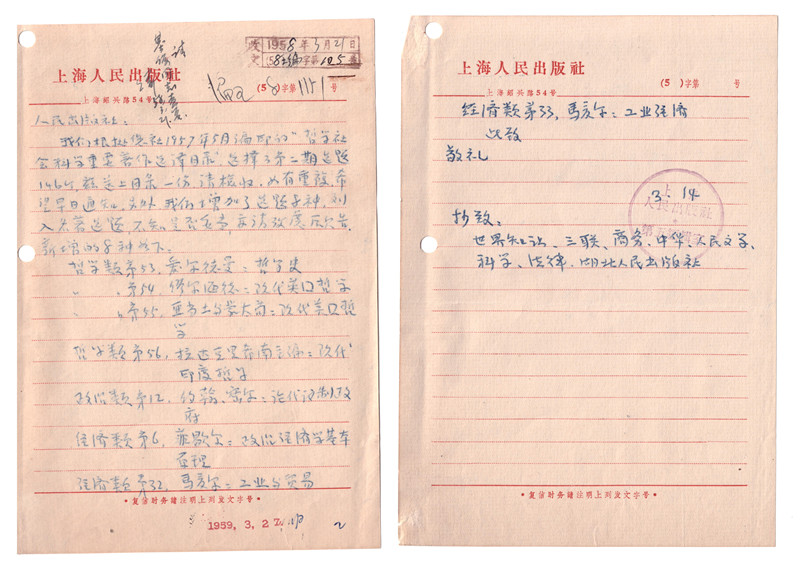 收 1958年3月21日
文 58 字第105号
上海人民出版社
上海紹兴路54号
(58)字第1151号
人民出版社：
我们根据你社1957年5月编印的"哲学社
会科学重要著作选译目录"选择了第二期选题
146种，兹送上目录一份，请核收，如有重复，希
望早日通知。另外我们增加了选题8种，列
入名著选题
新增的8种如下：
哲学类第53，
：哲学史
〃 第54，
：现代美国哲学
〃 第55，亚
：现代美国哲
学
哲学类第56，拉达克里希南主编：现代
印度哲学
政治类第12，约翰·密尔：论代议制政
府
经济类第6，
：政治经济学基本
原理
经济类第32，馬夏尔：工业与贸易
·复信时务請注明上列发文字号·
1959, 3, 2
2
上海人民出版社
(5 )字第 号
经济类第33，馬夏尔：工业经济
此致
敬礼
3. 14
抄致：
世界知识、三联、商务、中华、人民文学、
科学、法律、湖北人民出版社
·复信时务請注明上列发文字号·